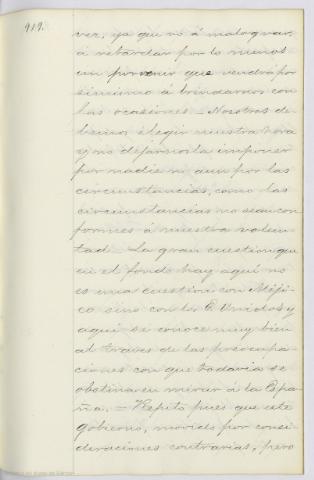 919.
vez, ya que no á malograr,
á retardar por lo menos
un porvenir que vendrá por
si mismo á brindarnos con
las ocasiones. Nosotros de-
bemos elegir nuestra hora
y no dejárnosla imponer
por nadie ni aun por las
circunstancias, como las
circunstancias no sean con
formes á nuestra volun-
tad. La gran cuestion que
en el fondo hay aqui no
es una cuestion con Méji-
co sino con los E. Unidos y
aqui se conoce muy bien
al traves de las preocupa-
ciones con que todavia se
obstina en mirar á la Espa-
ña. = Repito pues que este
Gobierno, movido por consi-
deraciones contrarias, pero